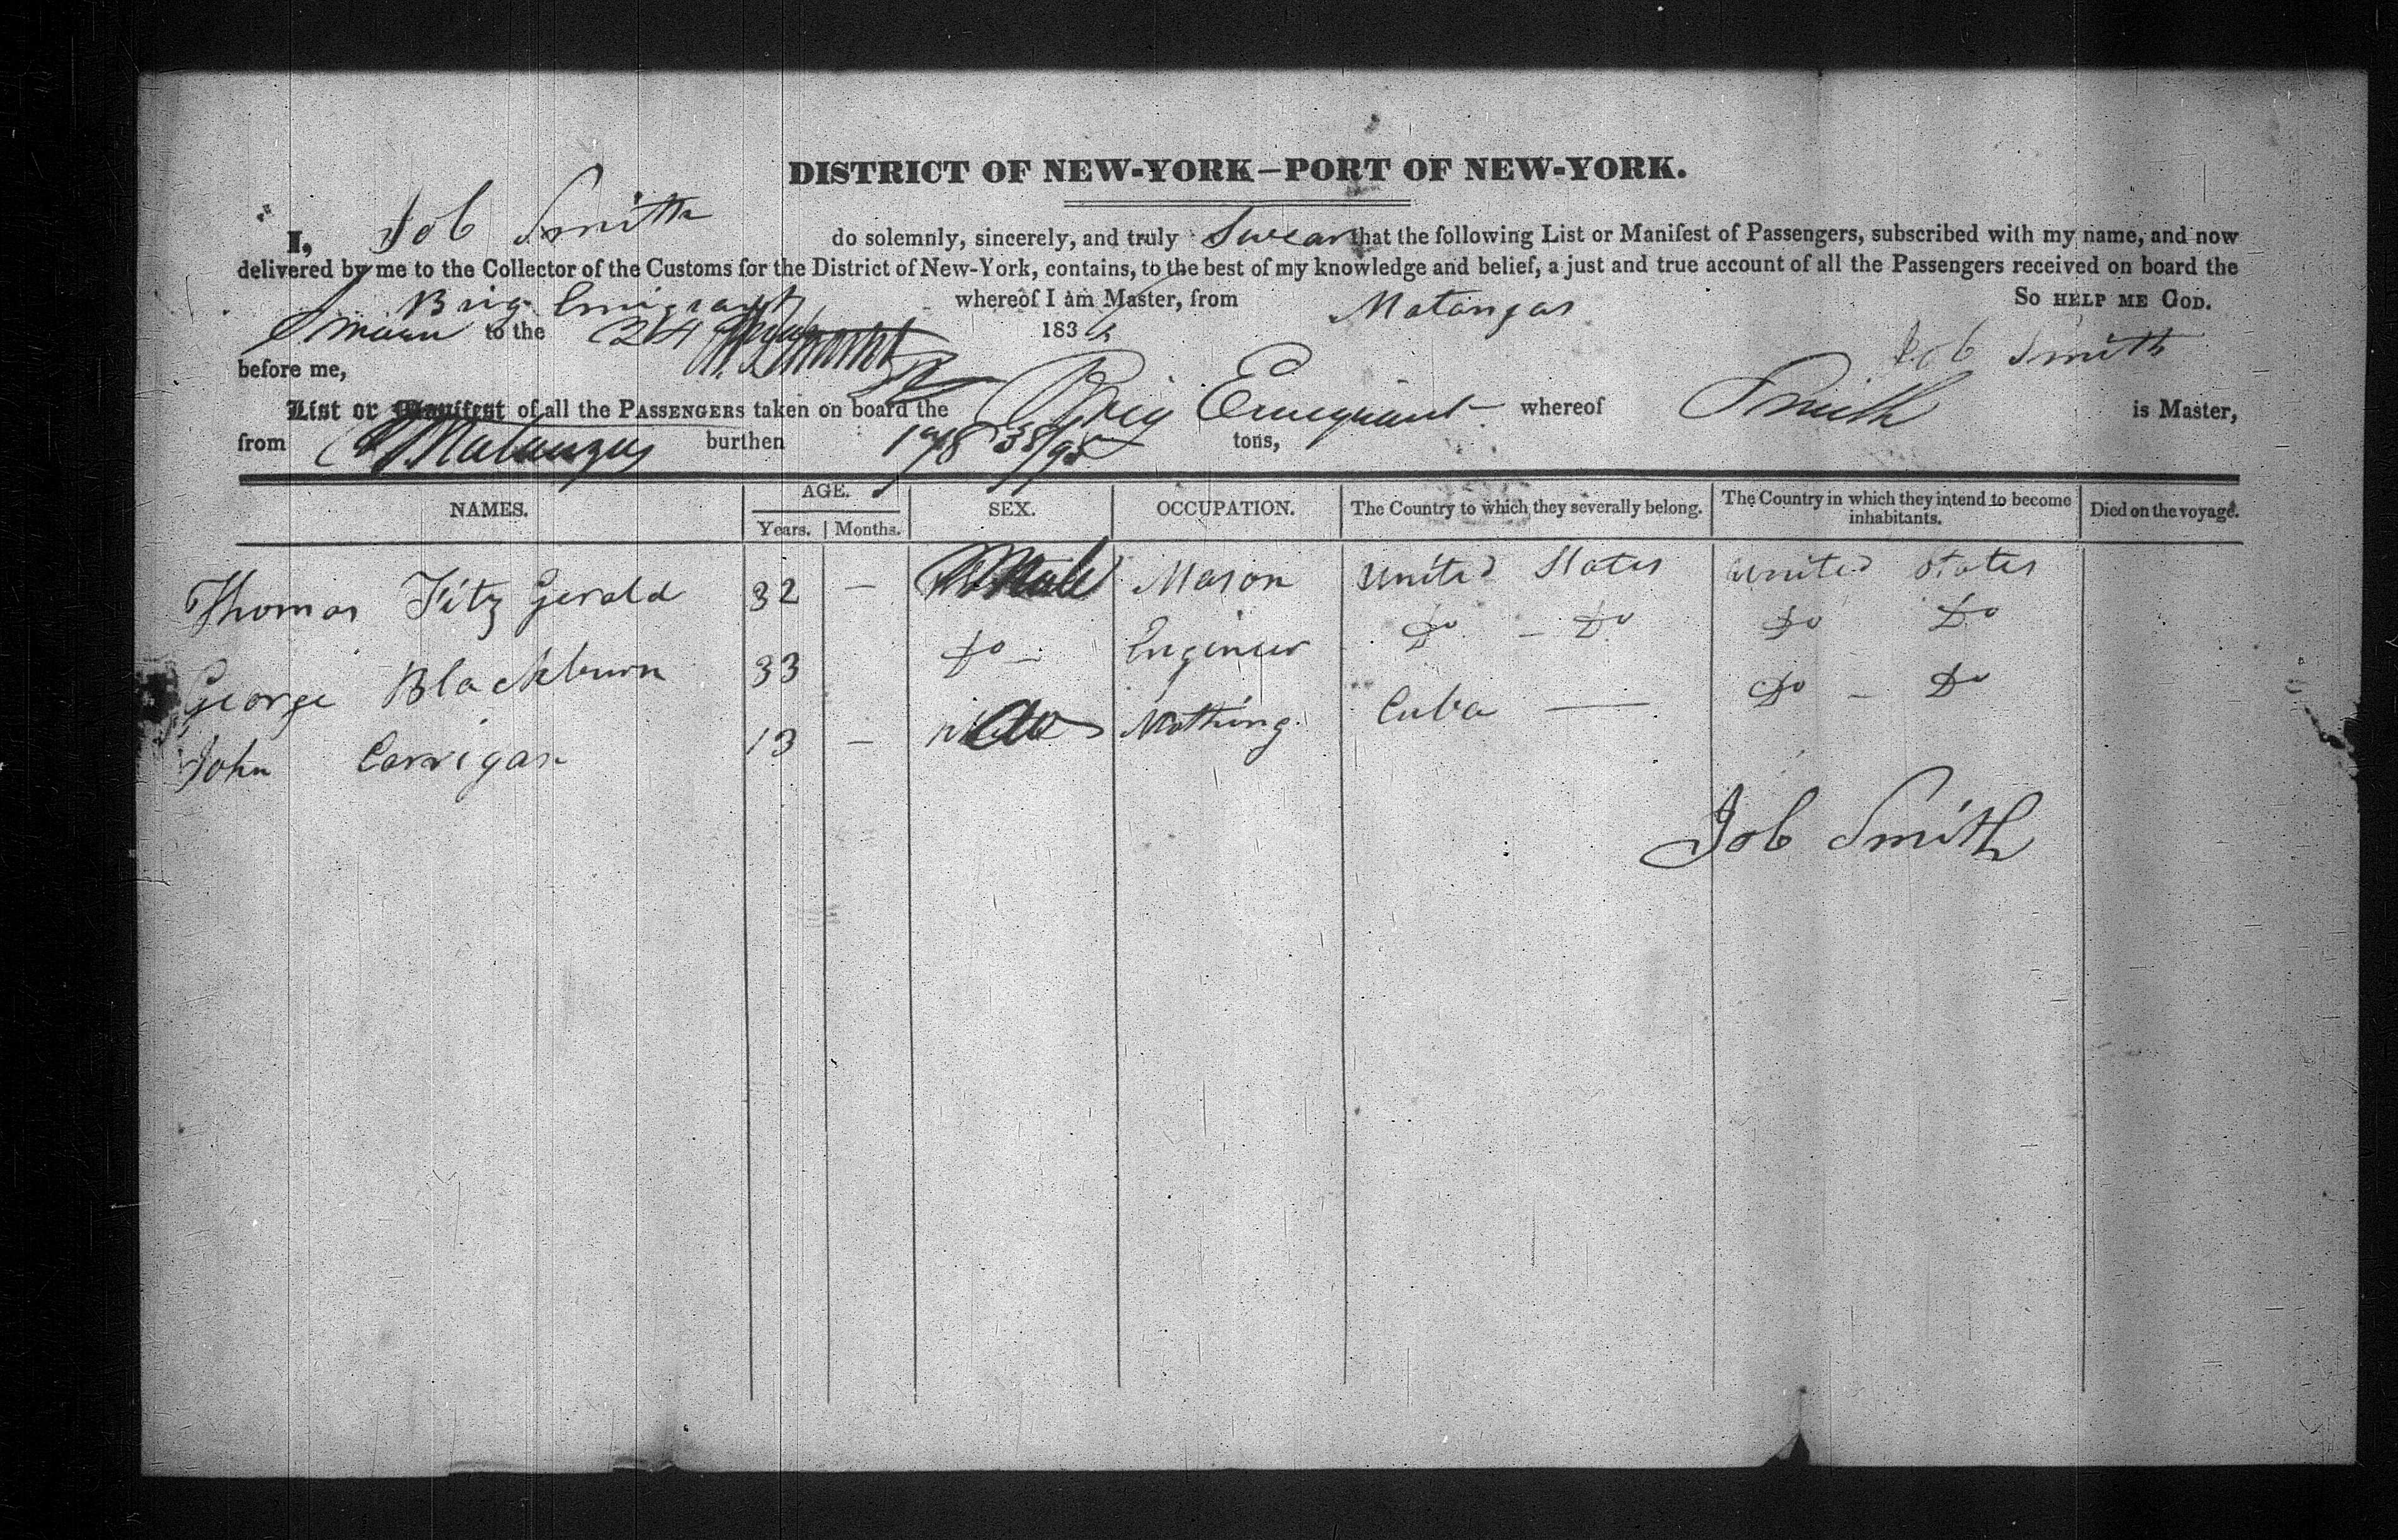 DISTRICT OF NEW-YORK—PORT OF NEW-YORK.
I, Job Smith do solemnly, sincerely, and truly Swear that the following List or Manifest of Passengers, subscribed with my name, and now
delivered by me to the Collector of the Customs for the District of New-York, contains, to the best of my knowledge and belief, a just and true account of all the Passengers received on board the
Brig Emigrant whereof I am Master, from Matanzas So HELP ME GOD.
Sworn to the 24 183
before me, Job Smith
List or Manifest of all the PASSENGERS taken on board the Brig Emigrant whereof Smith is Master,
from Matanzas burthen 178 38/95 tons,
NAMES. AGE. SEX. OCCUPATION. The Country to which they severally belong. The Country in which they intend to become inhabitants. Died on the voyage.
Years. Months.
Thomas Fitz Gerald 32 — Male Mason United States United States
George Blackburn 33 Do — Engineer Do — Do Do Do
John Carrigan 13 — do Nothing Cuba — Do — Do
Job Smith